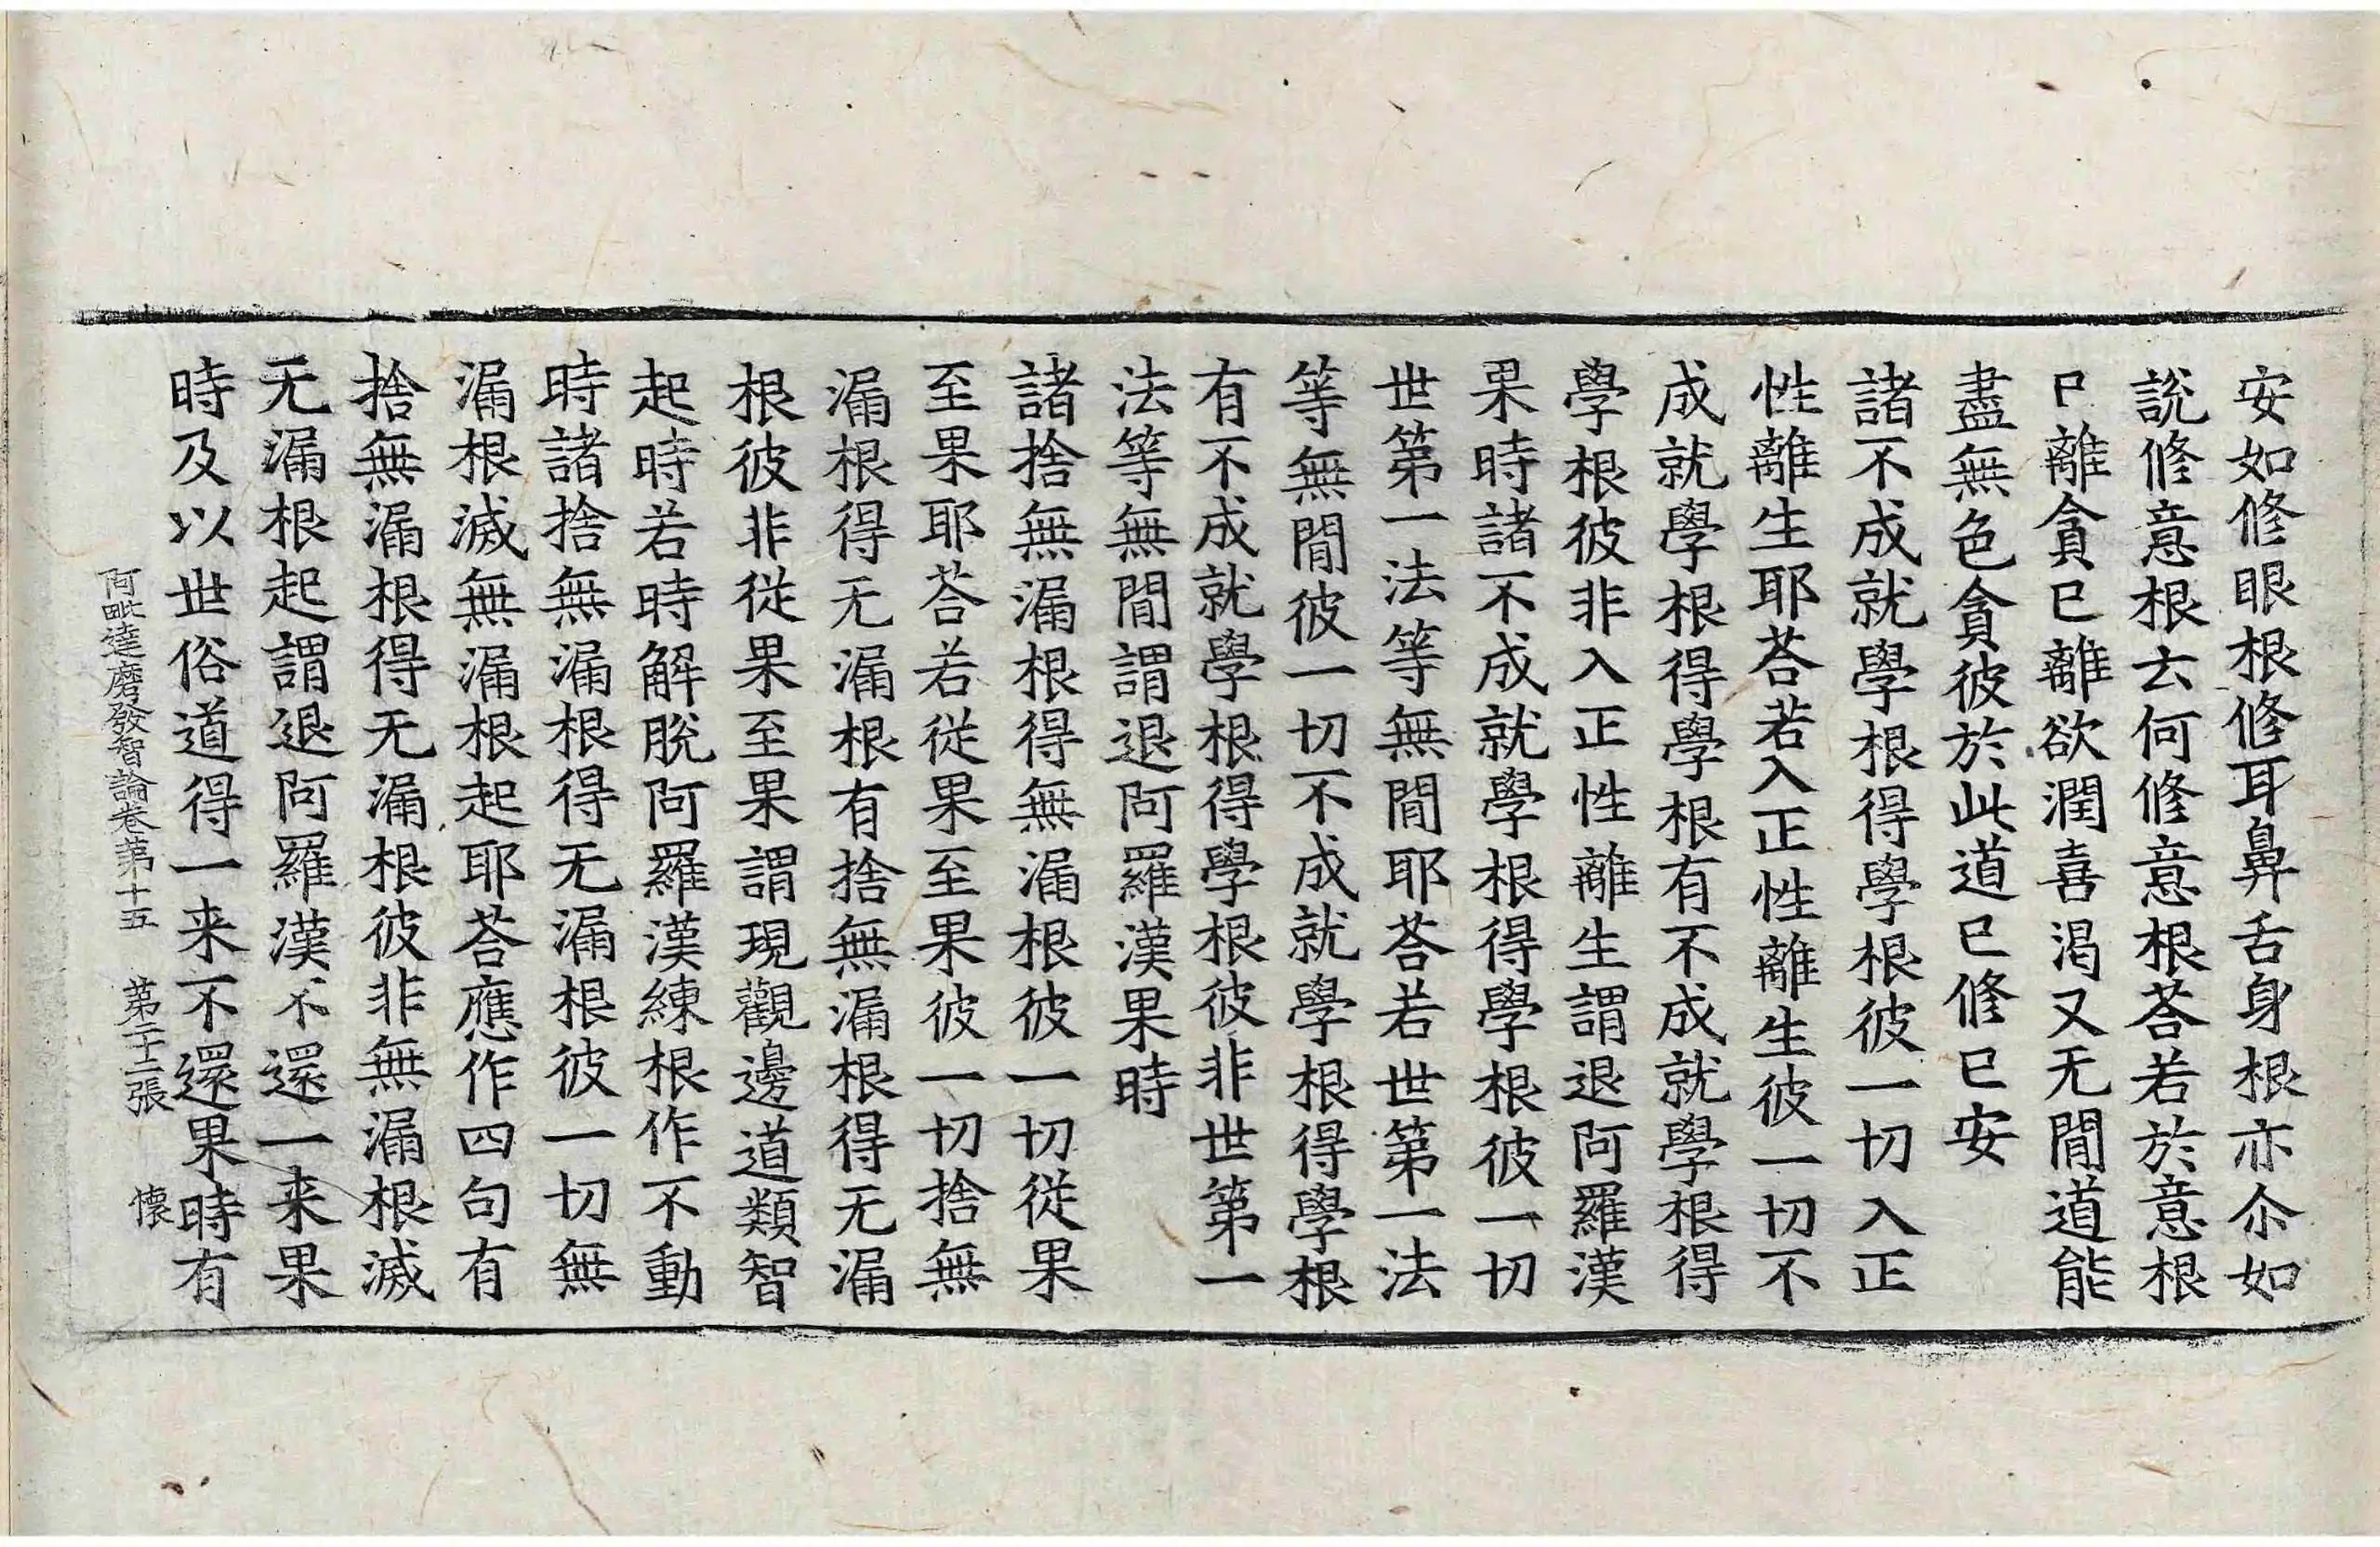 安如修眼根修耳鼻舌身根亦尒如
說修意根去何修意根荅若於意根
巳離貪巳離欲潤喜渇又无閒道能
盡無色貪彼於此道巳修巳安
諸不成就學根得學根彼一切入正
性離生耶荅若入正性離生彼一切不
成就學根得學根有不成就學根得
學根彼非入正性離生謂退阿羅漢
果時諸不成就學根得學根彼一切
世第一法等無閒耶荅若世第一法
等無閒彼一切不成就學根得學根
有不成就學根得學根彼非世第一
法等無閒謂退阿羅漢果時
諸捨無漏根得無漏根彼一切從果
至果耶荅若從果至果彼一切捨無
漏根得无漏根有捨無漏根得无漏
根彼非從果至果謂現觀邊道類智
起時若時解脫阿羅漢練根作不動
時諸捨無漏根得无漏根彼一切無
漏根滅無漏根起耶荅應作四句有
捨無漏根得无漏根彼非無漏根滅
无漏根起謂退阿羅漢不還一来果
時及以世俗道得一来不還果時有
阿毗達磨發智論卷第十五 第二十二張 懷